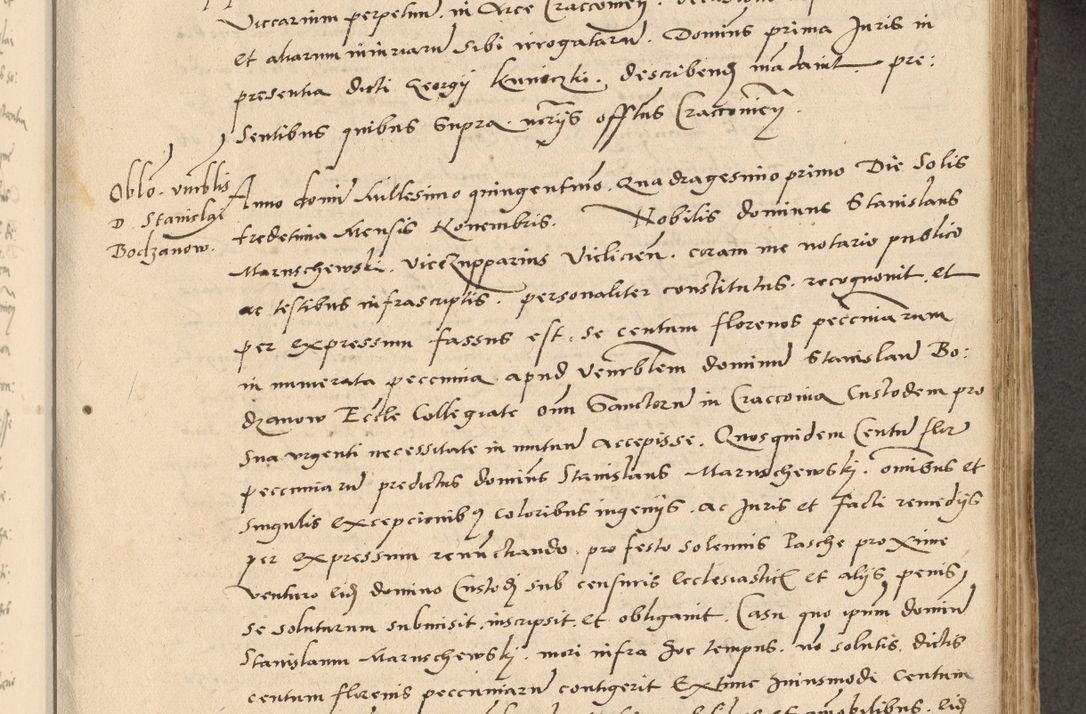 Viccarium perpetuū. in Arce Craccovieñ.
et aliarum iniuriarū sibi irrogatarū. Dominus prima Juris in
presentia dicti Georgij Kuniczki. describend mādavit pre:
sentibus quibus supra. nōrijs offstus Craccovieñ.
Oblō. vnrblis
D Stanislai
Bodzanow.
Anno domī Millesimo quingentimo. Quadragesimo primo Die Solis
tredetima Mensis Novembris. Nobilis dominus Stanislaus
Maruschewski. vicezupparius Vieliciēn. coram me notario publico
ac testibus infrascriptis. personaliter constitutus. recognovit. et
per expressum fassus est. se centum florenos peccuniarum
in numerata peccunia apud venrblem dominū Stanislaū Bo:
dzanow Eccle Collegiate oīm Sanctorū in Cracconia Custodem pro
sua urgenti necessitate in mutuū accepisse. Quosquidem Centū flor
peccuniarū predictus dominus Stanislaus Maruschewski. omībus et
singulis excepcionibq coloribus ingenijs. ac Juris et facti remedijs
per expressum renūctiando. pro festo solennis Pasche proxime
venturo eid domino Custodi sub censuris ecclesiastic et alijs penis
se soluturum submisit. inscripsit et obligavit. Casu quo ipum dominū
Stanislaum Maruschewski. mori infra hoc tempus. nō solutis dictis
centum florenis peccuniarū contigerit Extunc huiusmodi centum